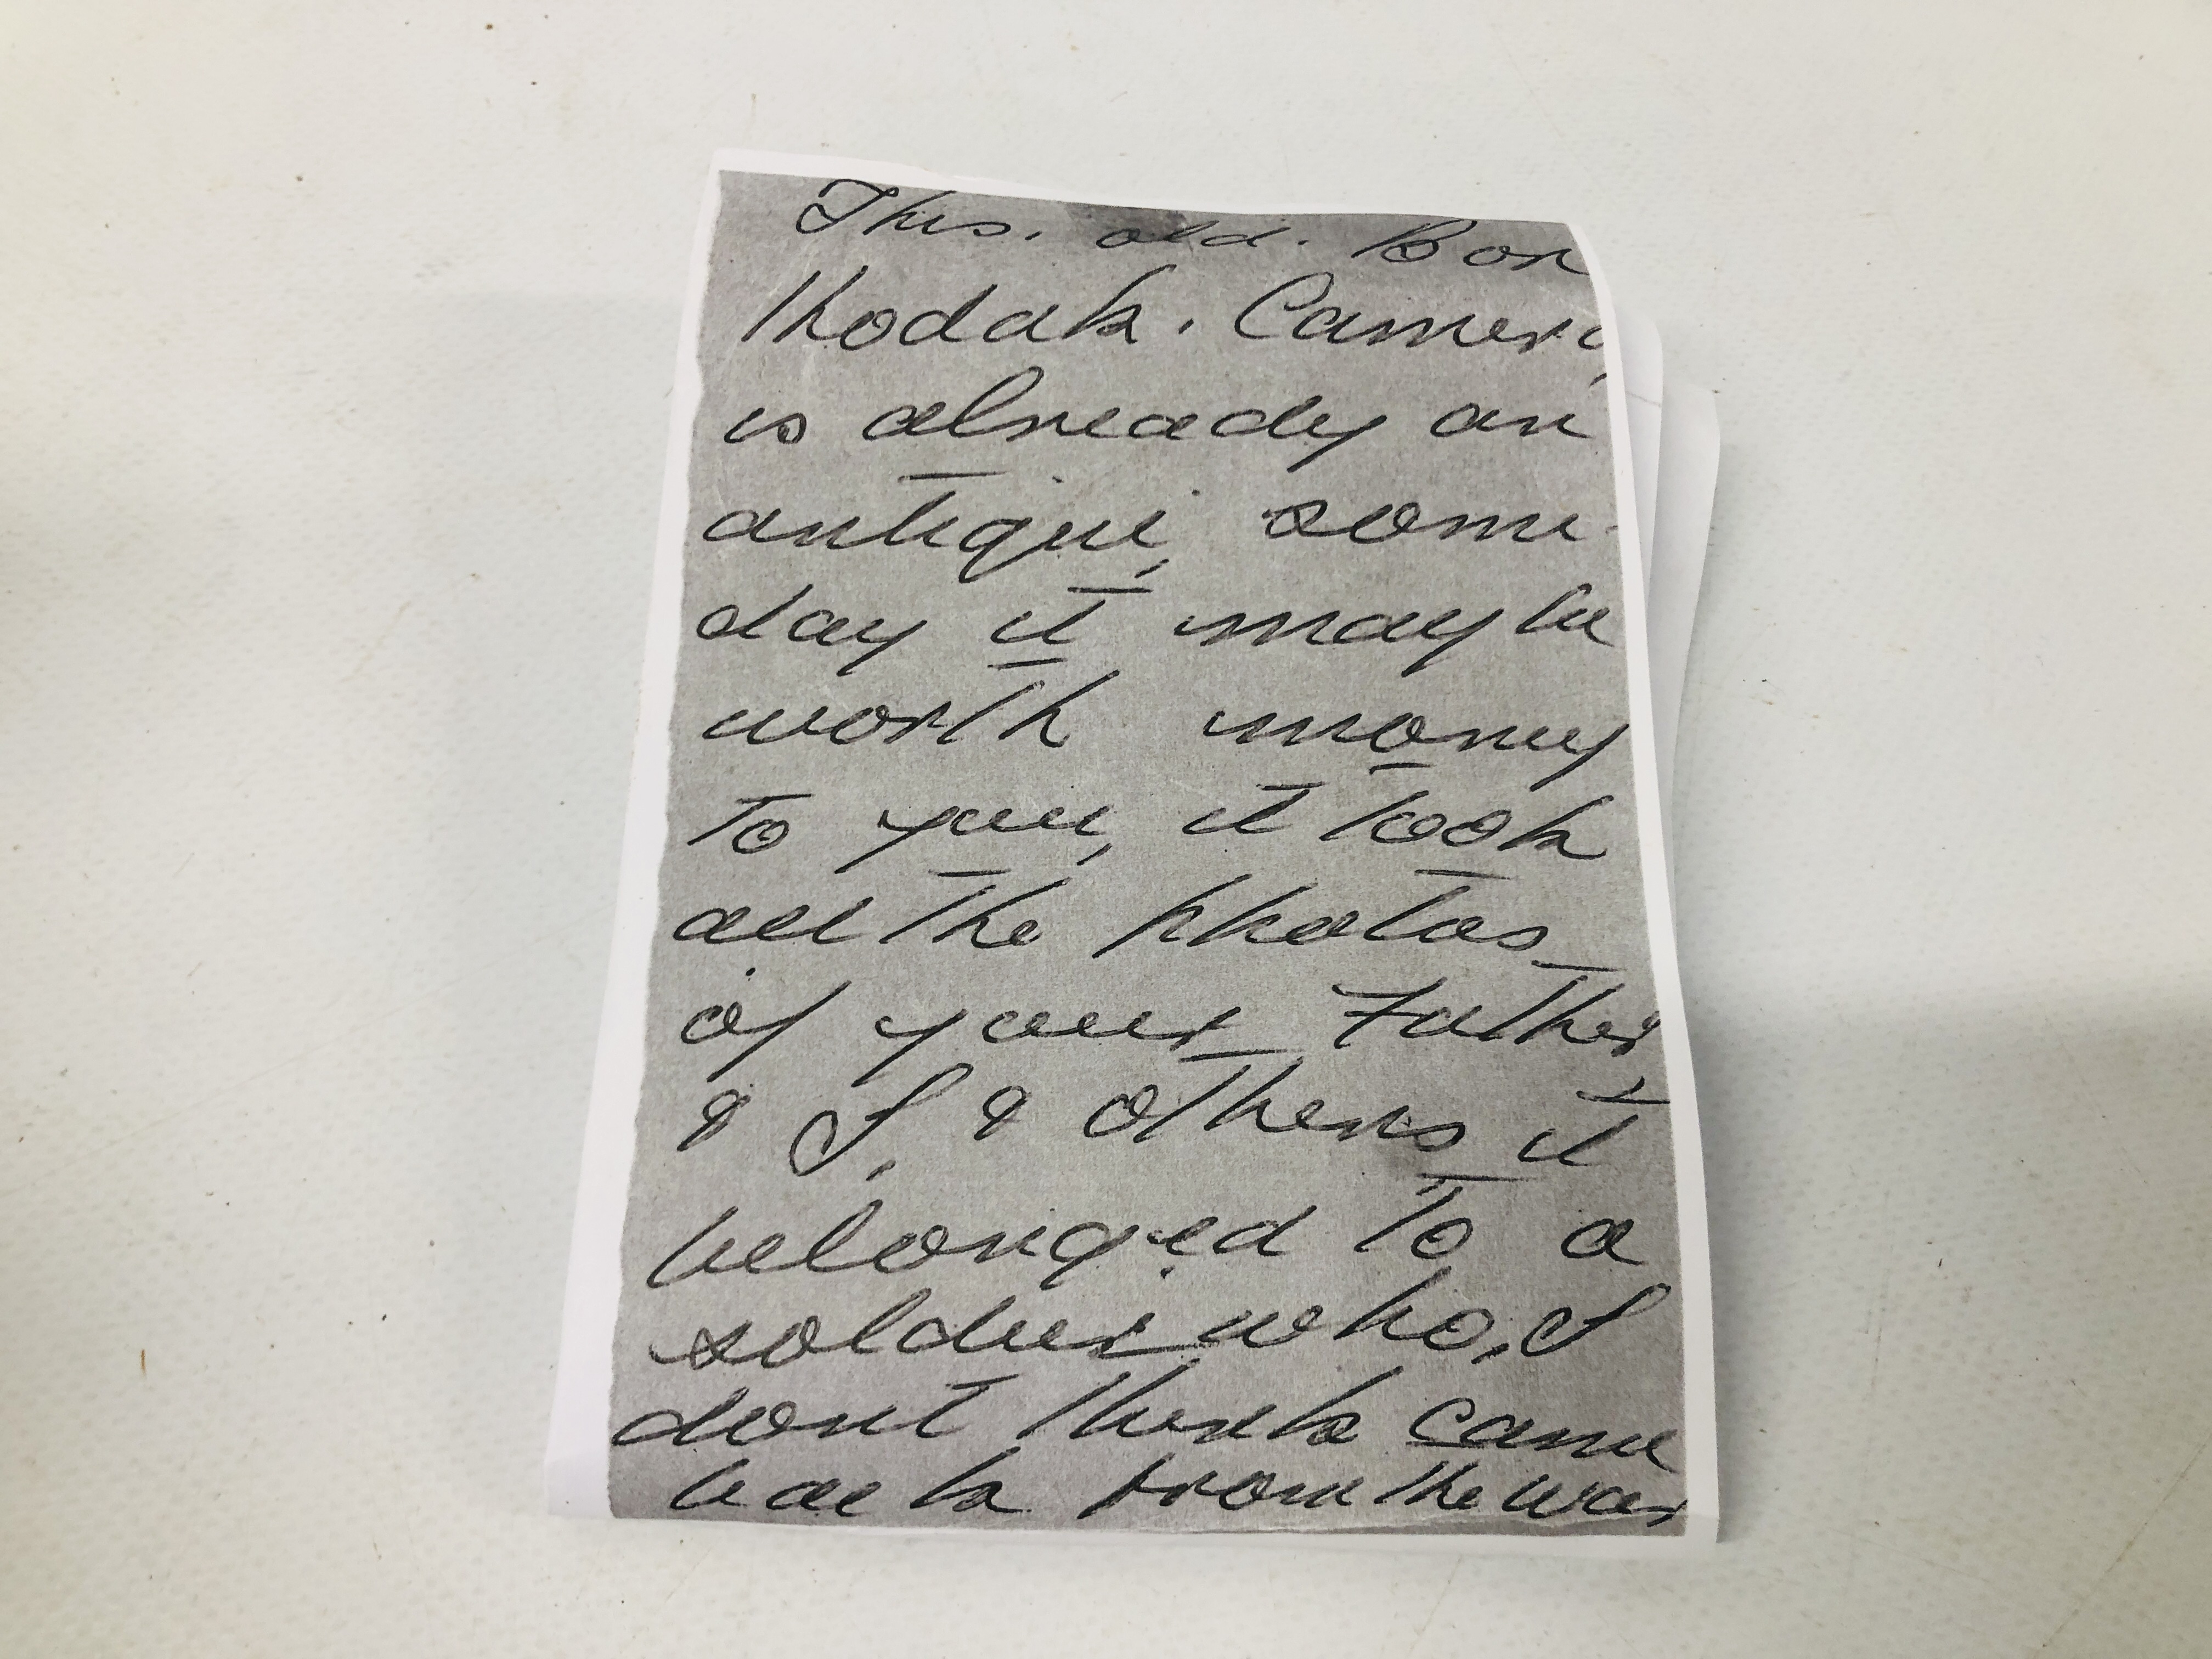 This. old. Box
Kodak. Camera
is already an
antique, some-
day it may be
worth money
to you, it took
all the photos
of your Father
& I, & others, it
belonged to a
soldier who, I
dont think came
back from the war